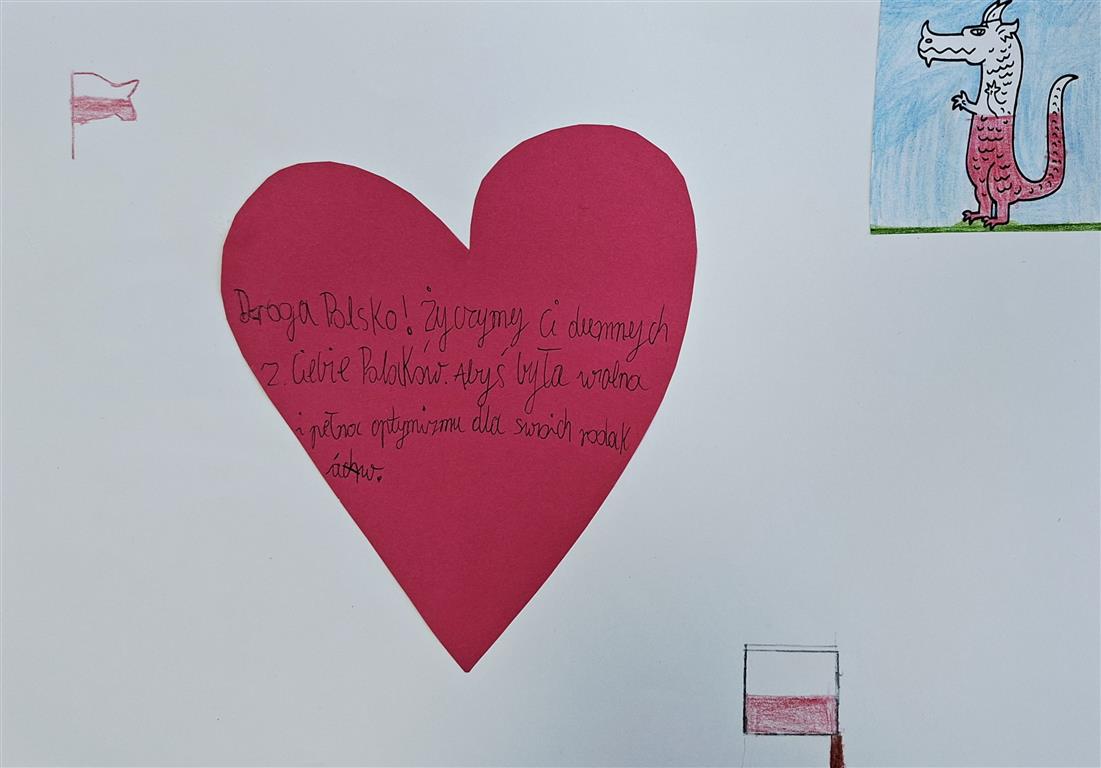 Droga Polsko! Życzymy Ci dumnych
z Ciebie Polaków. Abyś była wolna
i pełna optymizmu dla swoich rodak
ów.